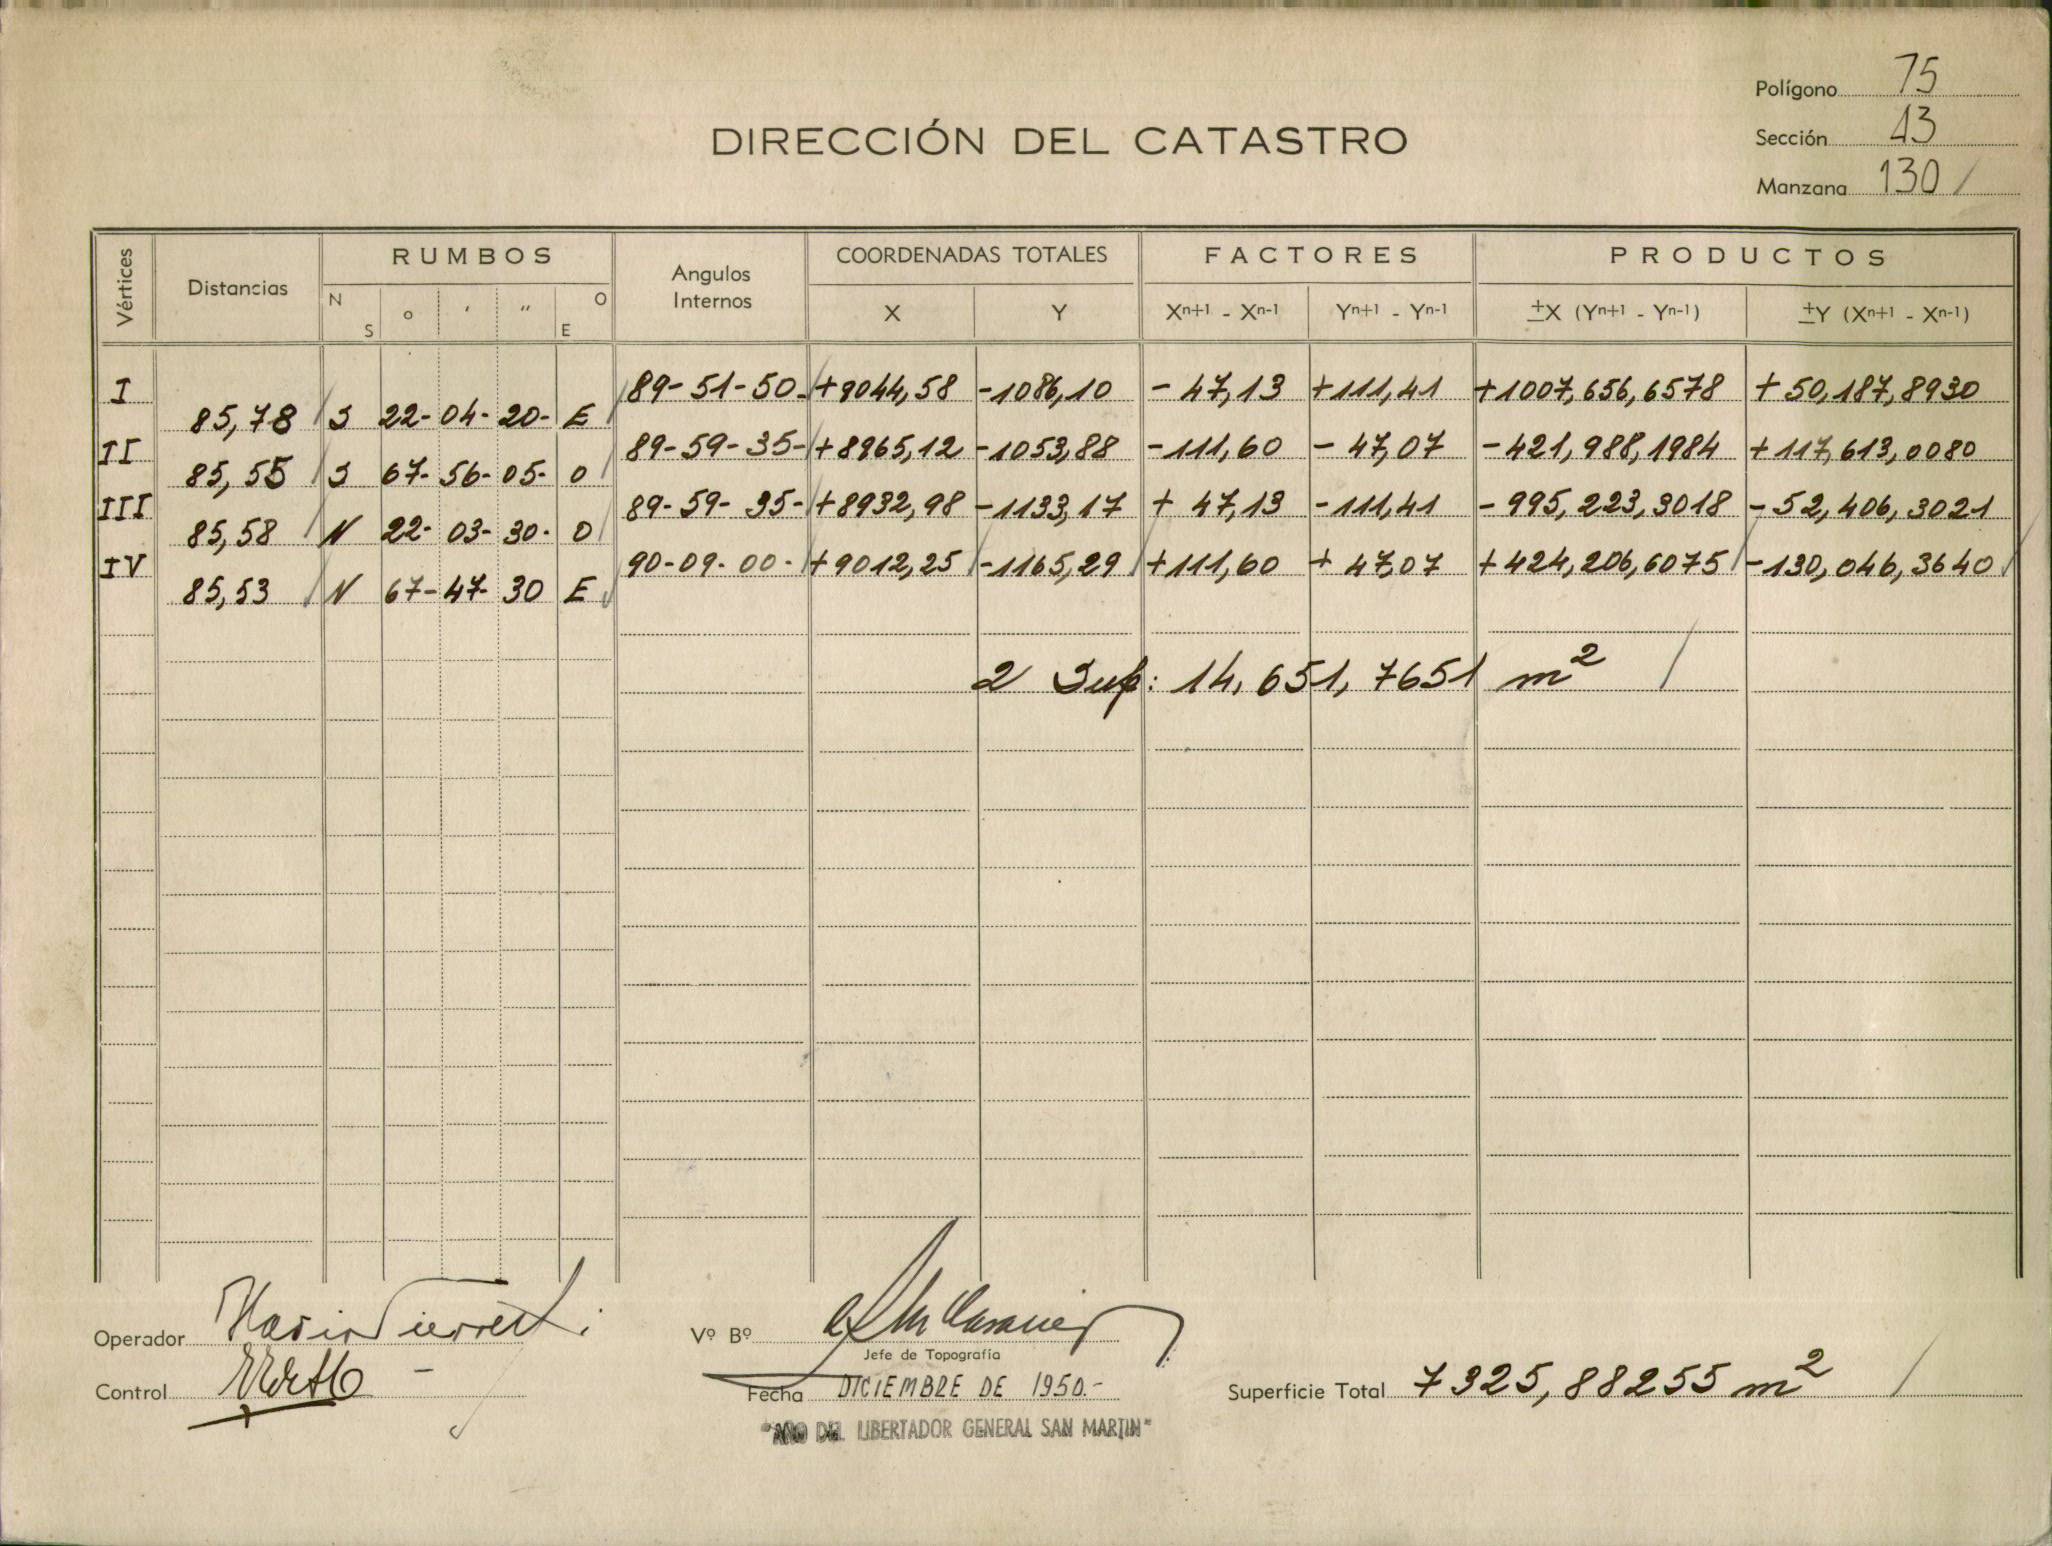 Polígono 75
Sección 43
Manzana 130 /
DIRECCIÓN DEL CATASTRO
Vértices Distancias RUMBOS Angulos Internos COORDENADAS TOTALES FACTORES PRODUCTOS
N S o ' " O E X Y Xn+1 - Xn-1 Yn+1 - Yn-1 ±X (Yn+1 - Yn-1) ±Y (Xn+1 - Xn-1)
I 89-51-50- +9044,58 -1086,10 -47,13 +111,41 +1007,656,6578 +50,187,8930
85,78 / S 22-04-20- E /
II 89-59-35- +8965,12 -1053,88 -111,60 -47,07 -421,988,1984 +117,613,0080
85,55 / S 67-56-05- O /
III 89-59-35- +8932,98 -1133,17 +47,13 -111,41 -995,223,3018 -52,406,3021
85,58 / N 22-03-30- O /
IV 90-09-00- +9012,25 -1165,29 +111,60 +47,07 +424,206,6075 -130,046,3640
85,53 / N 67-47-30 E
2 Sup: 14,651,7651 m² /
Operador
Vº Bº
Jefe de Topografía
Control
Fecha DICIEMBRE DE 1950.-
Superficie Total 7325,88255 m² /
"AÑO DEL LIBERTADOR GENERAL SAN MARTIN"